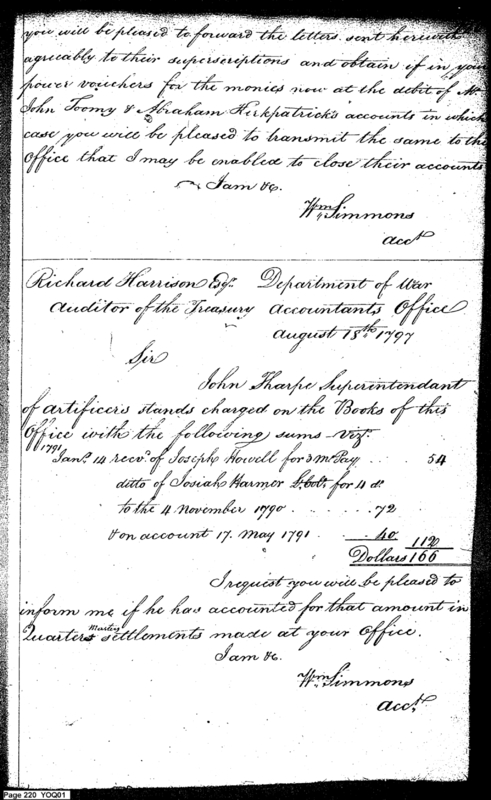 you will be pleased to forward the letters sent herewith
agreeably to their superscriptions and obtain if in your
power vouchers for the monies now at the debit of Mr
John Toomy & Abraham Kirkpatrick's accounts in which
case you will be pleased to transmit the same to the
Office that I may be enabled to close their accounts
I am &c.
Wm Simmons
Acct
Richard Harrison Esqr. Department of War
Auditor of the Treasury Accountants Office
August 18th 1797
Sir
John Tharpe Superintendant
of Artificers stands charged on the Books of this
Office with the following sums Vizt.
1791
Jany. 14 recd. of Joseph Howell for 3 Mo Pay . . . 54
ditto of Josiah Harmer Lt. Colt. for 4 do
to the 4 November 1790 . . . . . . 72
& on account 17. May 1791 . . . . 40 112
Dollars 166
I request you will be pleased to
inform me if he has accounted for that amount in
Quarter Masters settlements made at your Office.
I am &c.
Wm Simmons
Acct.
Page 220 YOQ01